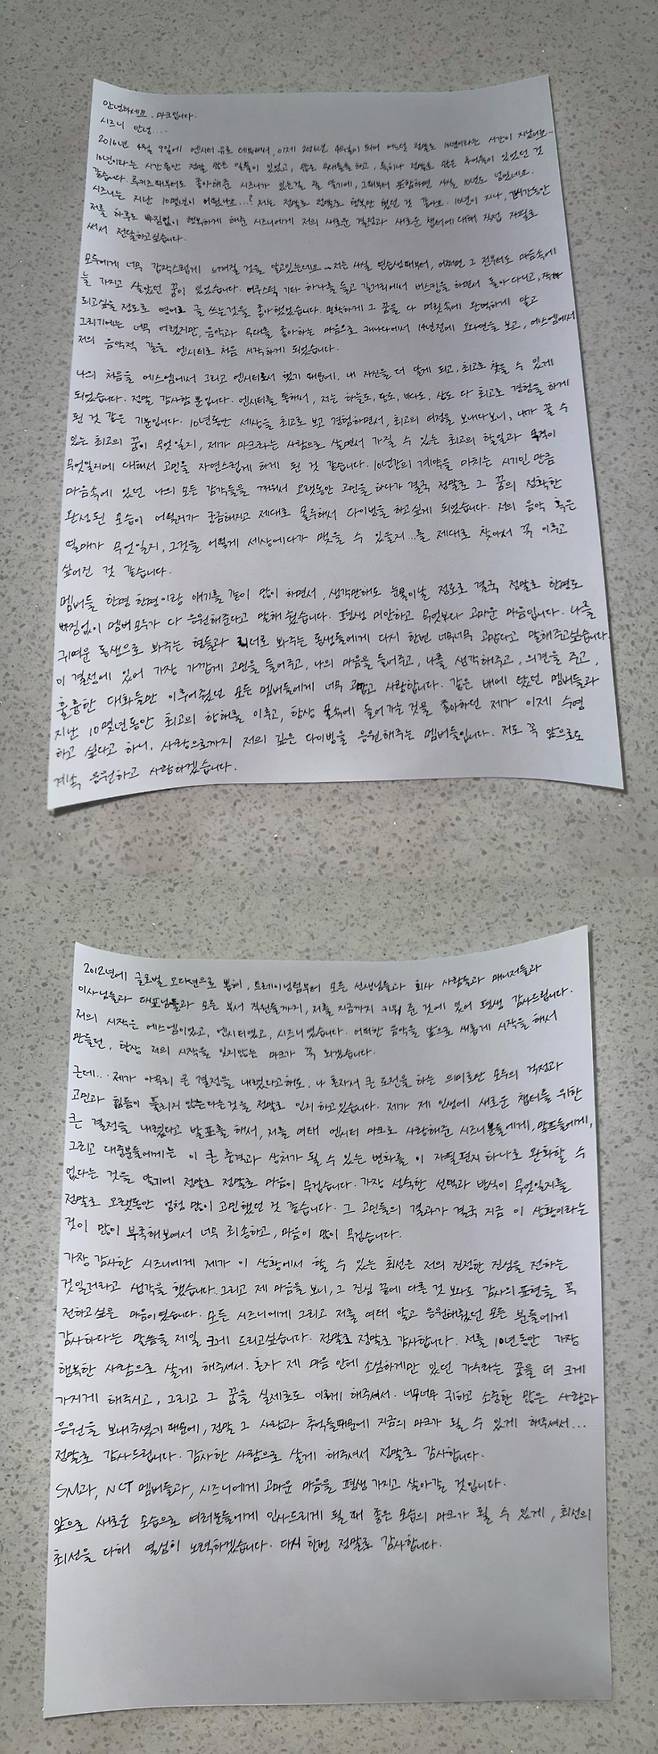 안녕하세요. 마크입니다.
시즈니 안녕...
2016년 4월 9일에 엔시티 유로 데뷔해서, 이제 2026년 4월이 되니 어느덧 정말로 10년이라는 시간이 지났네요..
10년이라는 시간동안 정말 많은 일들이 있었고, 많은 무대들을 하고, 특히나 정말로 많은 추억들이 있었던 것
같습니다. 루키즈때부터도 좋아해준 시즈니가 있는걸 잘 알기에, 그때부터 포함하면 사실 10년도 넘었네요.
시즈니는 지난 10몇년이 어땠나요...? 저는 정말로 정말로 행복만 했던 것 같아요. 10년이 지나, 긴 시간동안
저를 하루도 빠짐없이 행복하게 해준 시즈니에게 저의 새로운 결정과 새로운 챕터에 대해 직접 자필로
써서 전달하고싶습니다.
모두에게 너무 갑작스럽게 느껴질 것을 알고있는데요.. 저는 사실 연습생때부터, 어쩌면 그 전부터도 마음속에
늘 가지고 살았던 꿈이 있었습니다. 어쿠스틱 기타 하나를 들고 길거리에서 버스킹을 하면서 돌아다니고,
되고싶을 정도로 영어로 글 쓰는것을 좋아했었습니다. 명확하게 그 꿈을 다 머릿속에 완벽하게 담고
그리기에는 너무 어렸지만, 음악과 무대를 좋아하는 마음으로 캐나다에서 14년전에 오디션을 보고, 에스엠에서
저의 음악적 길을 엔시티로 처음 시작하게 되었습니다.
나의 처음을 에스엠에서 그리고 엔시티로서 했기 때문에, 내 자신을 더 알게 되고, 최고로 찾을 수 있게
되었습니다. 정말 감사할 뿐입니다. 엔시티를 통해서, 저는 하늘도, 땅도, 바다도, 산도 다 최고로 경험을 하게
된 것 같은 기분입니다. 10년동안 세상을 최고로 보고 경험하면서, 최고의 여정을 보내다보니, 내가 꿀 수
있는 최고의 꿈이 무엇일지, 제가 마크라는 사람으로 살면서 가질 수 있는 최고의 할일과 목적이
무엇일지에 대해서 고민을 자연스럽게 하게 된 것 같습니다. 10년간의 계약을 마치는 시기인 만큼
마음속에 있던 나의 모든 감각들을 깨워서 오랫동안 고민을 하다가 결국 정말로 그 꿈의 정확한
완성된 모습이 어떨까가 궁금해지고 제대로 몰두해서 다이빙을 하고싶게 되었습니다. 저의 음악 혹은
열매가 무엇일지, 그것을 어떻게 세상에다가 맺을 수 있을지..를 제대로 찾아서 꼭 이루고
싶어진 것 같습니다.
멤버들 한명 한명이랑 얘기를 같이 많이 하면서, 생각만해도 눈물이날 정도로 결국 정말로 한명도
빠짐없이 멤버 모두가 다 응원해준다고 말해줬습니다. 평생 미안하고 무엇보다 고마운 마음입니다. 나를
귀여운 동생으로 봐주는 형들과 리더로 봐주는 동생들에게 다시 한번 너무너무 고맙다고 말해주고싶습니다.
이 결정에 있어 가장 가깝게 고민을 들어주고, 나의 마음을 들어주고, 나를 생각해주고, 의견을 주고,
훌륭한 대화들만 이루어줬던 모든 멤버들에게 너무 고맙고 사랑합니다. 같은 배에 탔던 멤버들과
지난 10몇년동안 최고의 항해를 이루고, 항상 물속에 들어가는 것을 좋아하던 제가 이제 수영
하고 싶다고 하니, 사랑으로까지 저의 깊은 다이빙을 응원해주는 멤버들입니다. 저도 꼭 앞으로도
계속 응원하고 사랑하겠습니다.
2012년에 글로벌 오디션으로 뽑혀, 트레이닝팀부터 모든 선생님들과 회사 사람들과 매니저들과
이사님들과 대표님들과 모든 부서 직원들까지, 저를 지금까지 키워 준 것에 있어 평생 감사드립니다.
저의 시작은 에스엠이었고, 엔시티였고, 시즈니였습니다. 어떠한 음악을 앞으로 새롭게 시작을 해서
만들던, 항상 저의 시작을 잊지않는 마크가 꼭 되겠습니다.
근데.. 제가 아무리 큰 결정을 내렸다고해도, 나 혼자서 큰 도전을 하는 의미로만 모두의 걱정과
고민과 힘듦이 풀리지 않는다는것을 정말로 인지하고있습니다. 제가 제 인생에 새로운 챕터을 위한
큰 결정을 내렸다고 발표를 해서, 저를 여태 엔시티 마크로 사랑해준 시즈니분들에게, 팔로들에게,
그리고 대중분들에게는 이 큰 충격과 상처가 될 수 있는 변화를 이 자필편지 하나로 완화할 수
없다는 것을 알기에 정말로 정말로 마음이 무겁습니다. 가장 성숙한 선택과 방식이 무엇일지를
정말로 오랫동안 엄청 많이 고민했던 것 같습니다. 그 고민들의 결과가 결국 지금 이 상황이라는
것이 많이 부족해보여서 너무 죄송하고, 마음이 많이 무겁습니다.
가장 감사한 시즈니에게 제가 이 상황에서 할 수 있는 최선은 저의 진정한 진심을 전하는
것일거라고 생각을 했습니다. 그리고 제 마음을 보니, 그 진심 끝에 다른 것 보다도 감사의 표현을 꼭
전하고싶은 마음이였습니다. 모든 시즈니에게 그리고 저를 여태 알고 응원해줬던 모든 분들에게
감사하다는 말씀을 제일 크게 드리고싶습니다. 정말로 정말로 감사합니다. 저를 10년동안 가장
행복한 사람으로 살게 해주셔서. 혼자 제 마음 안에 소심하게만 있던 가수라는 꿈을 더 크게
가지게 해주시고, 그리고 그 꿈을 실제로도 이루게 해주셔서. 너무너무 귀하고 소중한 많은 사랑과
응원을 보내주셨기 때문에, 정말 그 사랑과 추억들때문에 지금의 마크가 될 수 있게 해주셔서...
정말로 감사드립니다. 감사한 사람으로 살게 해주셔서 정말로 감사합니다.
SM과, NCT 멤버들과, 시즈니에게 고마운 마음을 평생 가지고 살아갈 것입니다.
앞으로 새로운 모습으로 여러분들에게 인사드리게 될 때 좋은 모습의 마크가 될 수 있게, 최선의
최선을 다해 열심히 노력하겠습니다. 다시 한번 정말로 감사합니다.